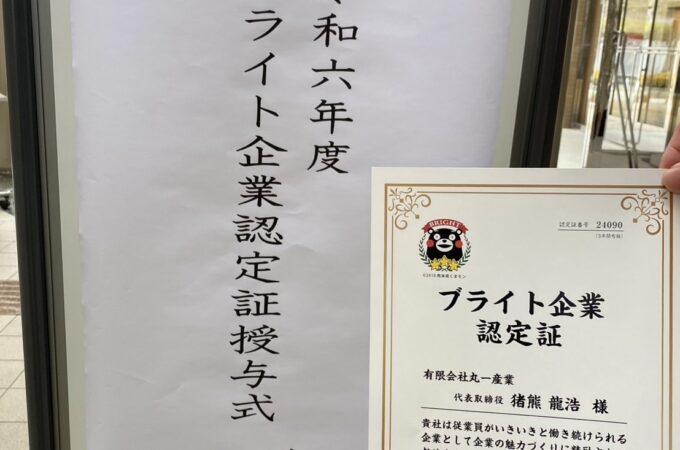 令和六年度
ブライト企業認定証授与式
認定証番号 24090
(3年間有効)
BRIGHT
©2010熊本県くまモン
ブライト企業
認定証
有限会社丸一産業
代表取締役 猪熊 龍浩 様
貴社は従業員がいきいきと働き続けられる
企業として企業の魅力づくりに